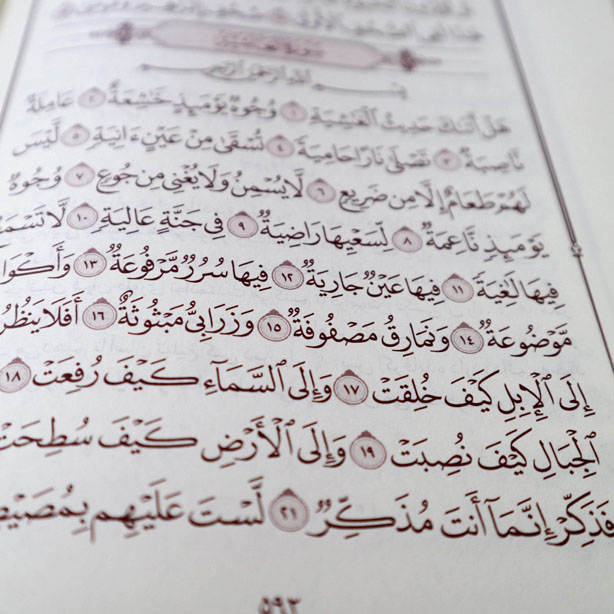 سورة الغاشية
بسم الله الرحمن الرحيم
هَلْ أَتَىٰكَ حَدِيثُ ٱلْغَٰشِيَةِ ١ وُجُوهٌ يَوْمَئِذٍ خَٰشِعَةٌ ٢ عَامِلَةٌ
نَّاصِبَةٌ ٣ تَصْلَىٰ نَارًا حَامِيَةً ٤ تُسْقَىٰ مِنْ عَيْنٍ ءَانِيَةٍ ٥ لَّيْسَ
لَهُمْ طَعَامٌ إِلَّا مِن ضَرِيعٍ ٦ لَّا يُسْمِنُ وَلَا يُغْنِى مِن جُوعٍ ٧ وُجُوهٌ
يَوْمَئِذٍ نَّاعِمَةٌ ٨ لِّسَعْيِهَا رَاضِيَةٌ ٩ فِى جَنَّةٍ عَالِيَةٍ ١٠ لَّا تَسْمَ
فِيهَا لَٰغِيَةً ١١ فِيهَا عَيْنٌ جَارِيَةٌ ١٢ فِيهَا سُرُرٌ مَّرْفُوعَةٌ ١٣ وَأَكْوَا
مَّوْضُوعَةٌ ١٤ وَنَمَارِقُ مَصْفُوفَةٌ ١٥ وَزَرَابِىُّ مَبْثُوثَةٌ ١٦ أَفَلَا يَنظُرُ
إِلَى ٱلْإِبِلِ كَيْفَ خُلِقَتْ ١٧ وَإِلَى ٱلسَّمَآءِ كَيْفَ رُفِعَتْ ١٨
ٱلْجِبَالِ كَيْفَ نُصِبَتْ ١٩ وَإِلَى ٱلْأَرْضِ كَيْفَ سُطِحَتْ
فَذَكِّرْ إِنَّمَآ أَنتَ مُذَكِّرٌ ٢١ لَّسْتَ عَلَيْهِم بِمُصَيْطِ
٥٩٢